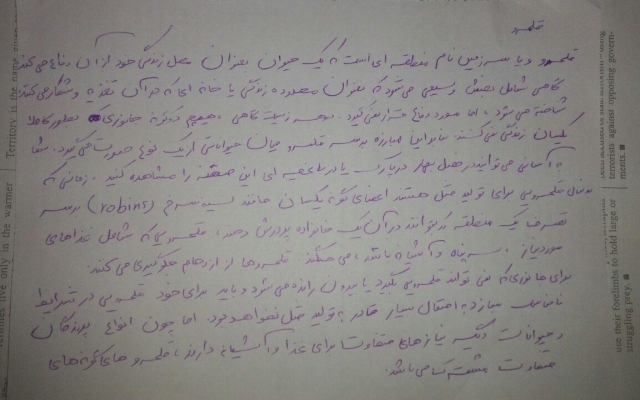 قلمرو
قلمرو و یا سرزمین نام منطقه ای است که یک حیوان بعنوان محل زندگی خود از آن دفاع می کند
گاهی شامل بخش وسیعی می شود که بعنوان محدوده زندگی یا خانه ای که در آن تغذیه و شکار می کند
شناخته می شود ، اما مورد دفاع قرار نمی گیرد. در زیستگاهی ، هیچ دو گونه جانوری که بطور کاملا
یکسان زندگی نمی کنند. بنابراین مبارزه بر سر قلمرو میان حیواناتی از یک نوع صورت می گیرد. شما
به آسانی می توانید در فصل بهار در پارک یا در باغچه ای این صحنه را مشاهده کنید. زمانی که
بدنبال قلمرویی برای تولید مثل هستند اعضای گونه یکسان مانند سینه سرخ (robins) بر سر
تصرف یک منطقه که بتوانند در آن یک خانواده پرورش دهند ، قلمرویی که شامل غذاهای
مورد نیاز ، سرپناه و آشیانه باشد ، می جنگند. قلمروها از ازدحام جلوگیری می کنند.
برای جانوری که نمی تواند قلمرویی بگیرد یا بیرون رانده می شود و باید برای خود قلمرویی در شرایط
نامناسب بسازد به احتمال بسیار قادر به تولید مثل نخواهد بود. اما چون انواع پرندگان
و حیوانات دیگر نیازهای متفاوت برای غذا و آشیانه دارند ، قلمرو های گونه های
متفاوت مشترک می باشد.
Territory is the name given
only in the warmer
terrorists against opposing govern-
ments. ■
use their forelimbs to hold large or
struggling prey. ■